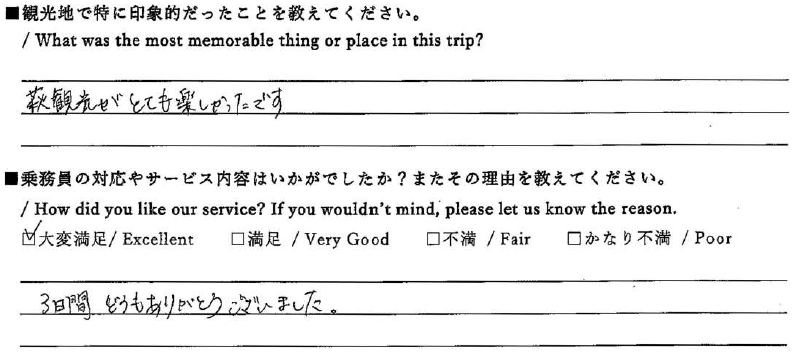 ■観光地で特に印象的だったことを教えてください。
/ What was the most memorable thing or place in this trip?
萩観光がとても楽しかったです
■乗務員の対応やサービス内容はいかがでしたか？またその理由を教えてください。
/ How did you like our service? If you wouldn't mind, please let us know the reason.
☑大変満足/ Excellent □満足 / Very Good □不満 / Fair □かなり不満 / Poor
3日間 どうもありがとうございました。